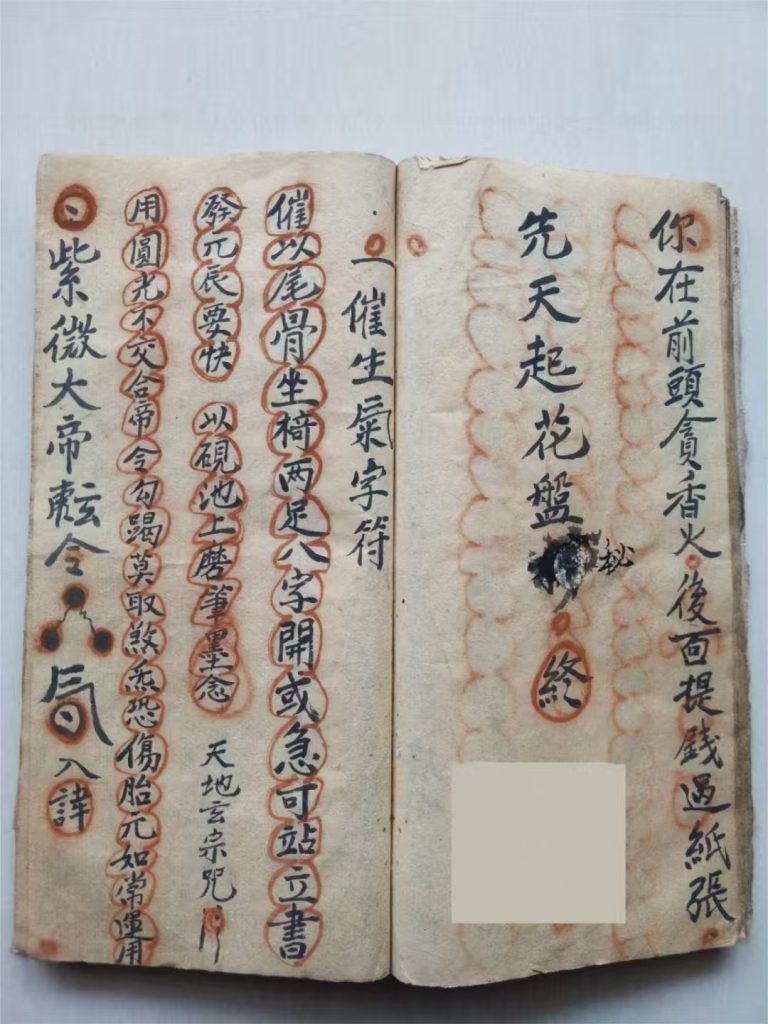 你在前頭貪香火後面提錢過紙張
先天起花盤
秘
終
一催生氣字符
催以尾骨坐椅两足八字開或急可站立書
發元辰要快 以硯池上磨筆墨念 天地玄宗咒
用圓光不交合帝令勾踢莫取煞炁恐傷胎元如常運用
紫微大帝敕令 入諱